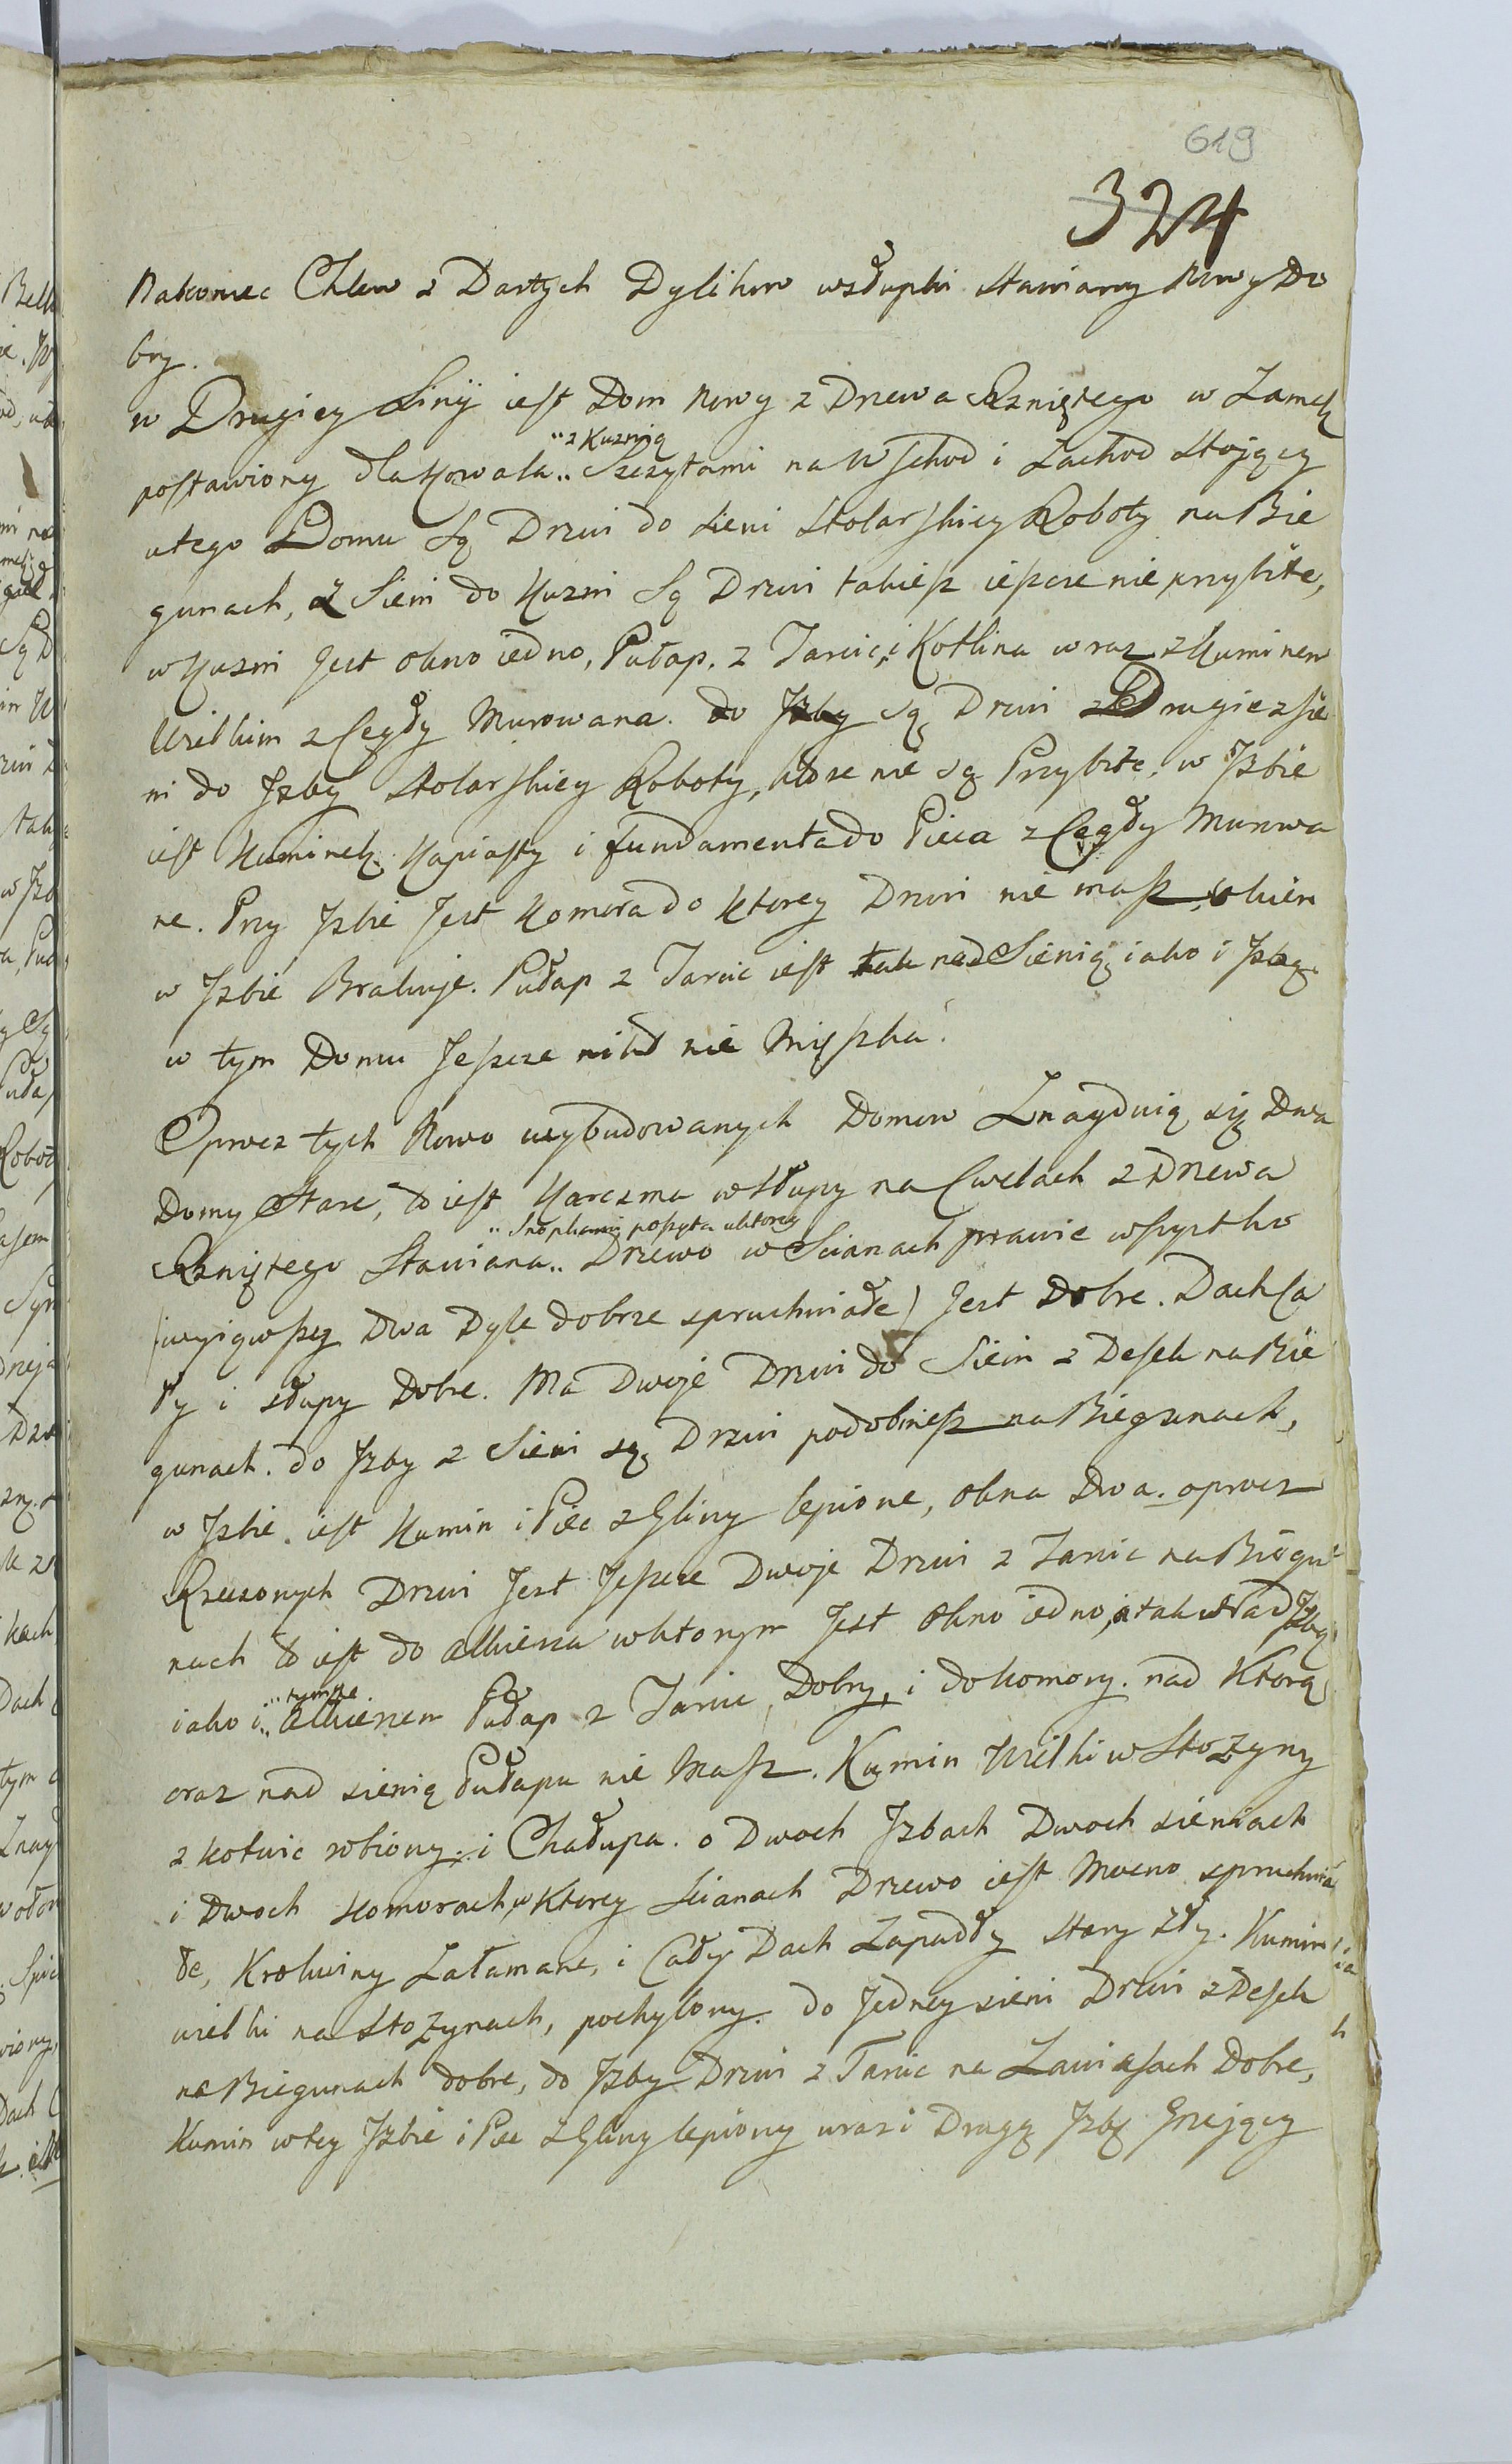 619
324
Nakoniec Chlew z Dartych Dylikow w słupki stawiany Nowy Do
bry.
w Drugiey Linÿ iest Dom nowy z Drzewa Rzniętego w Zamek
postawiony dla Kowala.. ..z Kuznią Szczytami na Wschod i Zachod Stojący
u tego Domu Są Drzwi do sieni Stolarskiey Roboty na Bie
gunach, z Sieni do Kuzni Są Drzwi takiesz ieszcze nie przybite,
w Kuzni Jest okno iedno, Pułap. z Tarcic, i Kotlina wraz z Kuminem
Wielkim z Cegły Murowana. do Jzby są Drzwi z Drugie z sie
ni do Jzby Stolarskiey Roboty, ktore nie są Przybite, w Jzbie
iest Kuminek Kapiasty i fundamenta do Pieca z Cegły Murowa
ne. Przy Jzbie Jest Komora do Ktorey Drzwi nie masz, okien
w Jzbie Brakuje. Pułap z Tarcic iest tak nad Sienią iako i Jzbą.
w tym Domu Jeszcze nikt nie Mięszka.
Oprocz tych Nowo wybudowanych Domow Znayduią się Dwa
Domy Stare, to iest Karczma w słupy na Cwelach z Drzewa
Rzniętego Stawiana.. ..Snopkami poszyta u ktorey Drzewo w Scianach prawie wszystko
(wyiąwszy Dwa Dyle dobrze spruchniałe) Jest Dobre. Dach Ca
ły i słupy Dobre. Ma Dwoje Drzwi do Sieni z Desek na Bie
gunach. do Jzby z Sieni są Drzwi podobniesz na Biegunach,
w Jzbie. iest Kumin i Piec z Gliny lepione, okna Dwa. oprocz
Rzeczonych Drzwi Jest Jeszcze Dwoje Drzwi z Tarcic na Biegu
nach to iest do alkierza w ktorym Jest Okno iedno, a tak nad Jzbą
iako i.. ..tymże alkierzem Pułap z Tarcic Dobry, i do komory. nad Ktorą
oraz nad sienią Pułapu nie Masz. Kumin Wielki w Stozyny
z kotwic robiony. i Chałupa. o Dwoch Jzbach Dwoch sieniach
i Dwoch Komorach, w Ktorey Scianach Drzewo iest Mocno spruchnia
łe, Krokwiny Załamane, i Cały Dach Zapadły stary zły. Kumin
wielki na Stozynach, pochylony. do Jedney sieni Drzwi z Desek
na Biegunach dobre, do Jzby Drzwi z Tarcic na Zawiasach Dobre,
Kumin w tey Jzbie i Piec z Gliny lepiony wraz i Drugą Jzbę Grzejący